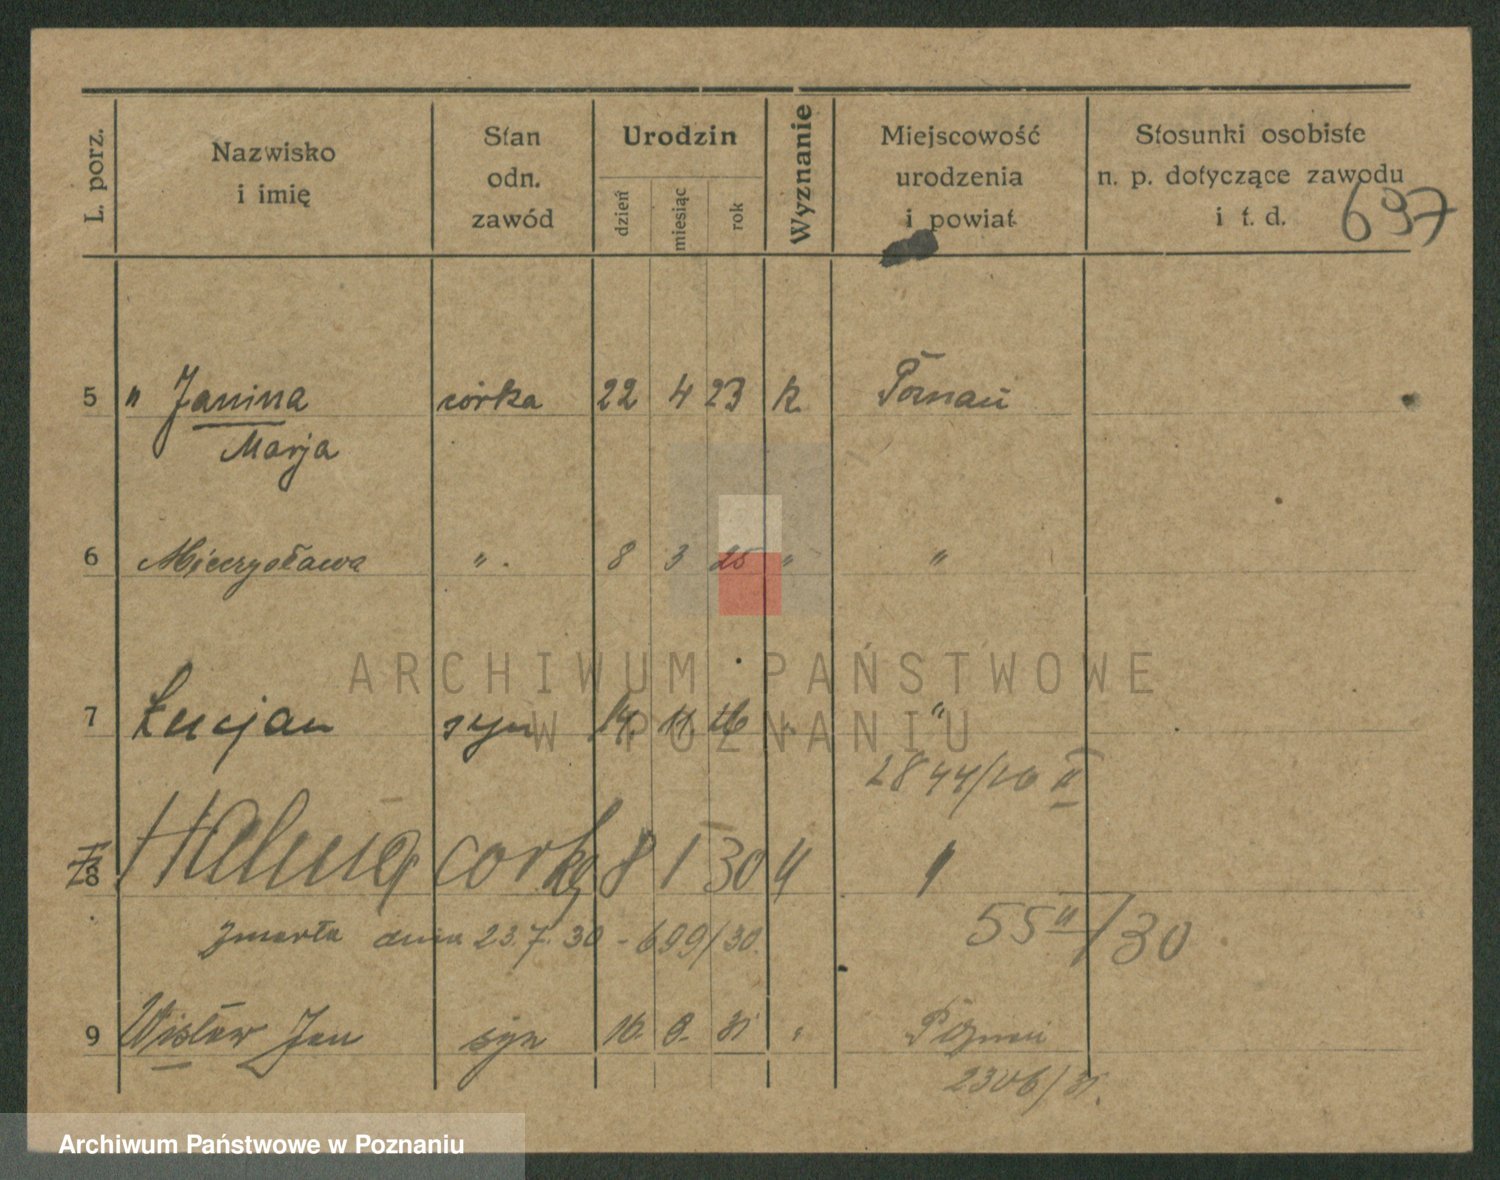 L. porz.
Nazwisko
i imię
Stan
odn.
zawód
Urodzin
dzień
miesiąc
rok
Wyznanie
Miejscowość
urodzenia
i powiat
Stosunki osobiste
n. p. dotyczące zawodu
i t. d.
697
5 " Janina córka 22 4 23 k. Poznań
Marja
6 Mieczysława " 8 3 25 " "
ARCHIWUM PAŃSTWOWE
W POZNANIU
7 Łucjan syn 14. 11. 26 " "
2844/26 II
8 Halina corka 8 I 30 " "
zmarła dnia 23.7.30 - 699/30.
55 II/30
9 Wisław Jan syn 16. 9. 31 " Poznań
2306/31.
Archiwum Państwowe w Poznaniu